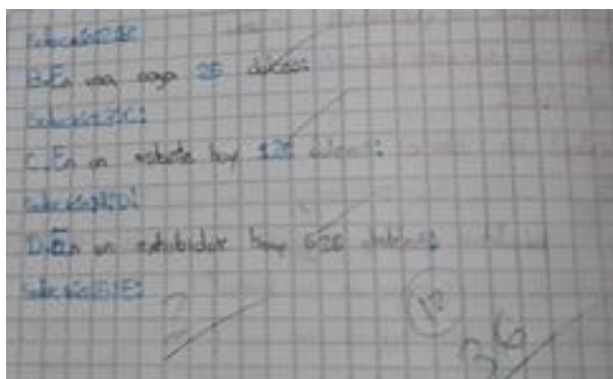 Solución B:
B. En una caja 25 dulces.
Solución C:
C. En un estante hay 125 dulces.
Solución D:
D. En un exhibidor hay 625 dulces.
Solución E:
36